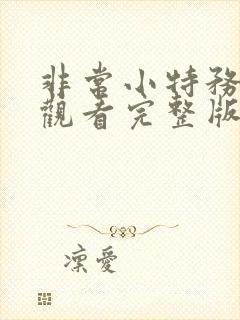 非常小特務
觀看完整版
凜愛